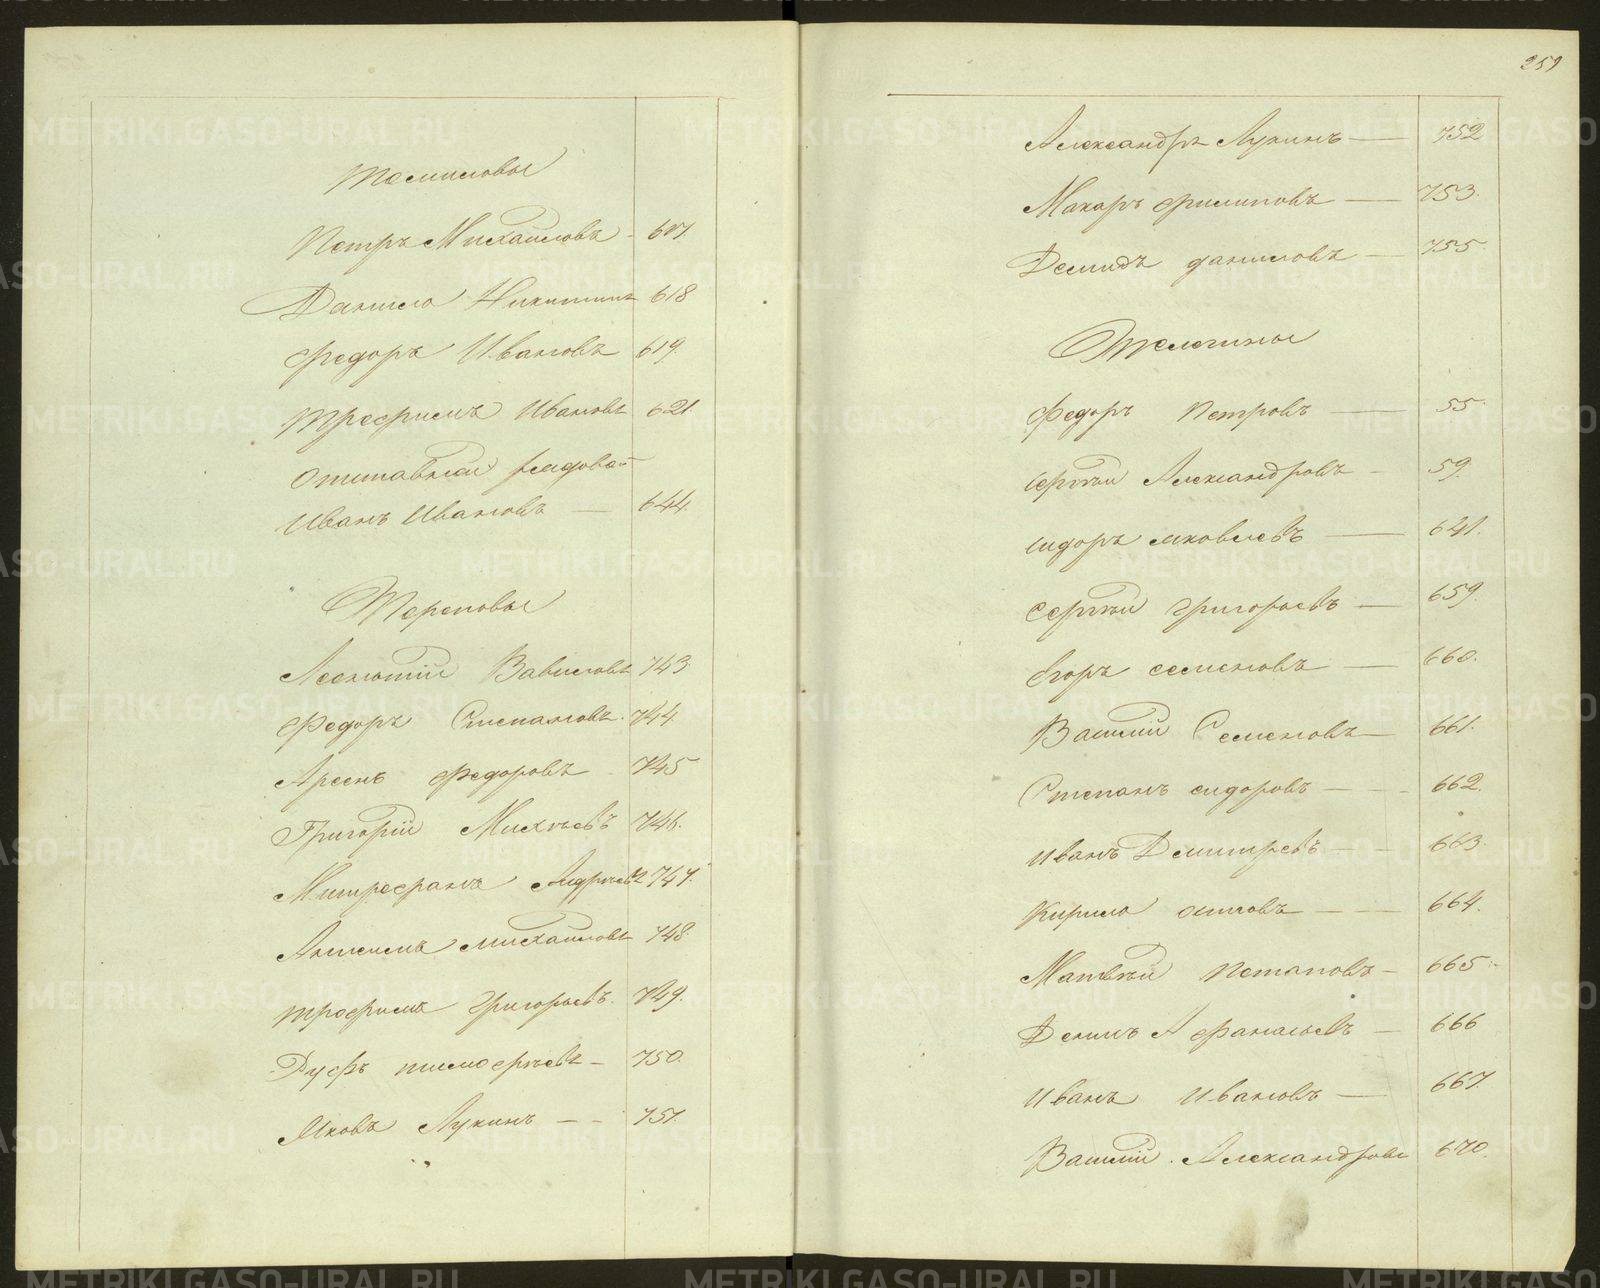 Томиловы
Петръ Михайловъ - 617.
Данило Никитинъ 618
Федоръ Ивановъ 619.
Трофимъ Ивановъ 621.
Отставной рядовой
Иванъ Ивановъ — 644.
Тереповы
Леонтій Вавиловъ 743
Федоръ Степановъ. 744.
Арсенъ Федоровъ 745
Григорій Михѣевъ 746.
Митрофанъ Андреевъ 747.
Антипъ Михайловъ 748.
Трофимъ Григорьевъ. 749.
Руфъ Тимофѣевъ — 750.
Яковъ Лукинъ — - 751.
259
Александръ Лукинъ — 752
Макаръ Филиповъ — 753.
Демидъ Даниловъ — 755.
Телегины
Федоръ Петровъ — 55.
Сергѣй Александровъ - 59.
Сидоръ Яковлевъ — 641.
Сергѣй Григорьевъ — 659.
Егоръ Семеновъ — 660.
Василій Семеновъ — 661.
Степанъ Сидоровъ — - - 662.
Иванъ Демитревъ — - 663.
Кирило Осиповъ — — 664.
Матвѣй Потаповъ - 665.
Денисъ Афанасьевъ — 666
Иванъ Ивановъ — 667.
Василій Александровъ 670.
METRIKI.GASO-URAL.RU